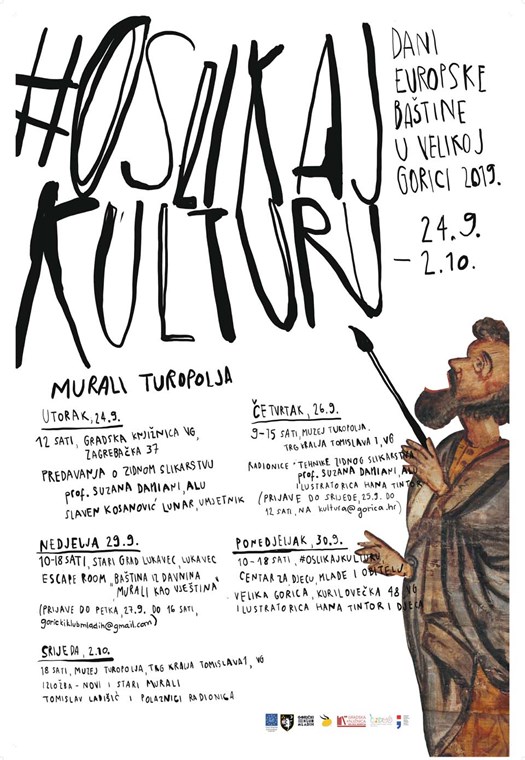 #OSLIKAJ
KULTURU
DANI
EUROPSKE
BAŠTINE
U VELIKOJ
GORICI 2019.
24.9.
– 2.10.
MURALI TUROPOLJA
UTORAK, 24.9.
12 SATI, GRADSKA KNJIŽNICA VG,
ZAGREBAČKA 37
PREDAVANJA O ZIDNOM SLIKARSTVU
prof. SUZANA DAMIANI, ALU
SLAVEN KOSANOVIĆ LUNAR, UMJETNIK
ČETVRTAK, 26.9.
9-15 SATI, MUZEJ TUROPOLJA,
TRG KRALJA TOMISLAVA 1, VG
RADIONICE - TEHNIKE ZIDNOG SLIKARSTVA
prof. SUZANA DAMIANI, ALU
ILUSTRATORICA HANA TINTOR
(PRIJAVE DO SRIJEDE, 25.9. DO
12 SATI, NA kultura@gorica.hr)
NEDJELJA 29.9.
10-18 SATI, STARI GRAD LUKAVEC, LUKAVEC
ESCAPE ROOM, BAŠTINA IZ DAVNINA,
MURALI KAO VJEŠTINA
(PRIJAVE DO PETKA, 27.9. DO 16 SATI,
gorickiklubmladih@gmail.com)
PONEDJELJAK, 30.9.
10-18 SATI, #OSLIKAJKULTURU,
CENTAR ZA DJECU, MLADE I OBITELJ
VELIKA GORICA, KURILOVEČKA 48, VG
ILUSTRATORICA HANA TINTOR I DJECA
SRIJEDA, 2.10.
18 SATI, MUZEJ TUROPOLJA, TRG KRALJA TOMISLAVA 1, VG
IZLOŽBA - NOVI I STARI MURALI
TOMISLAV LADIŠIĆ I POLAZNICI RADIONICA